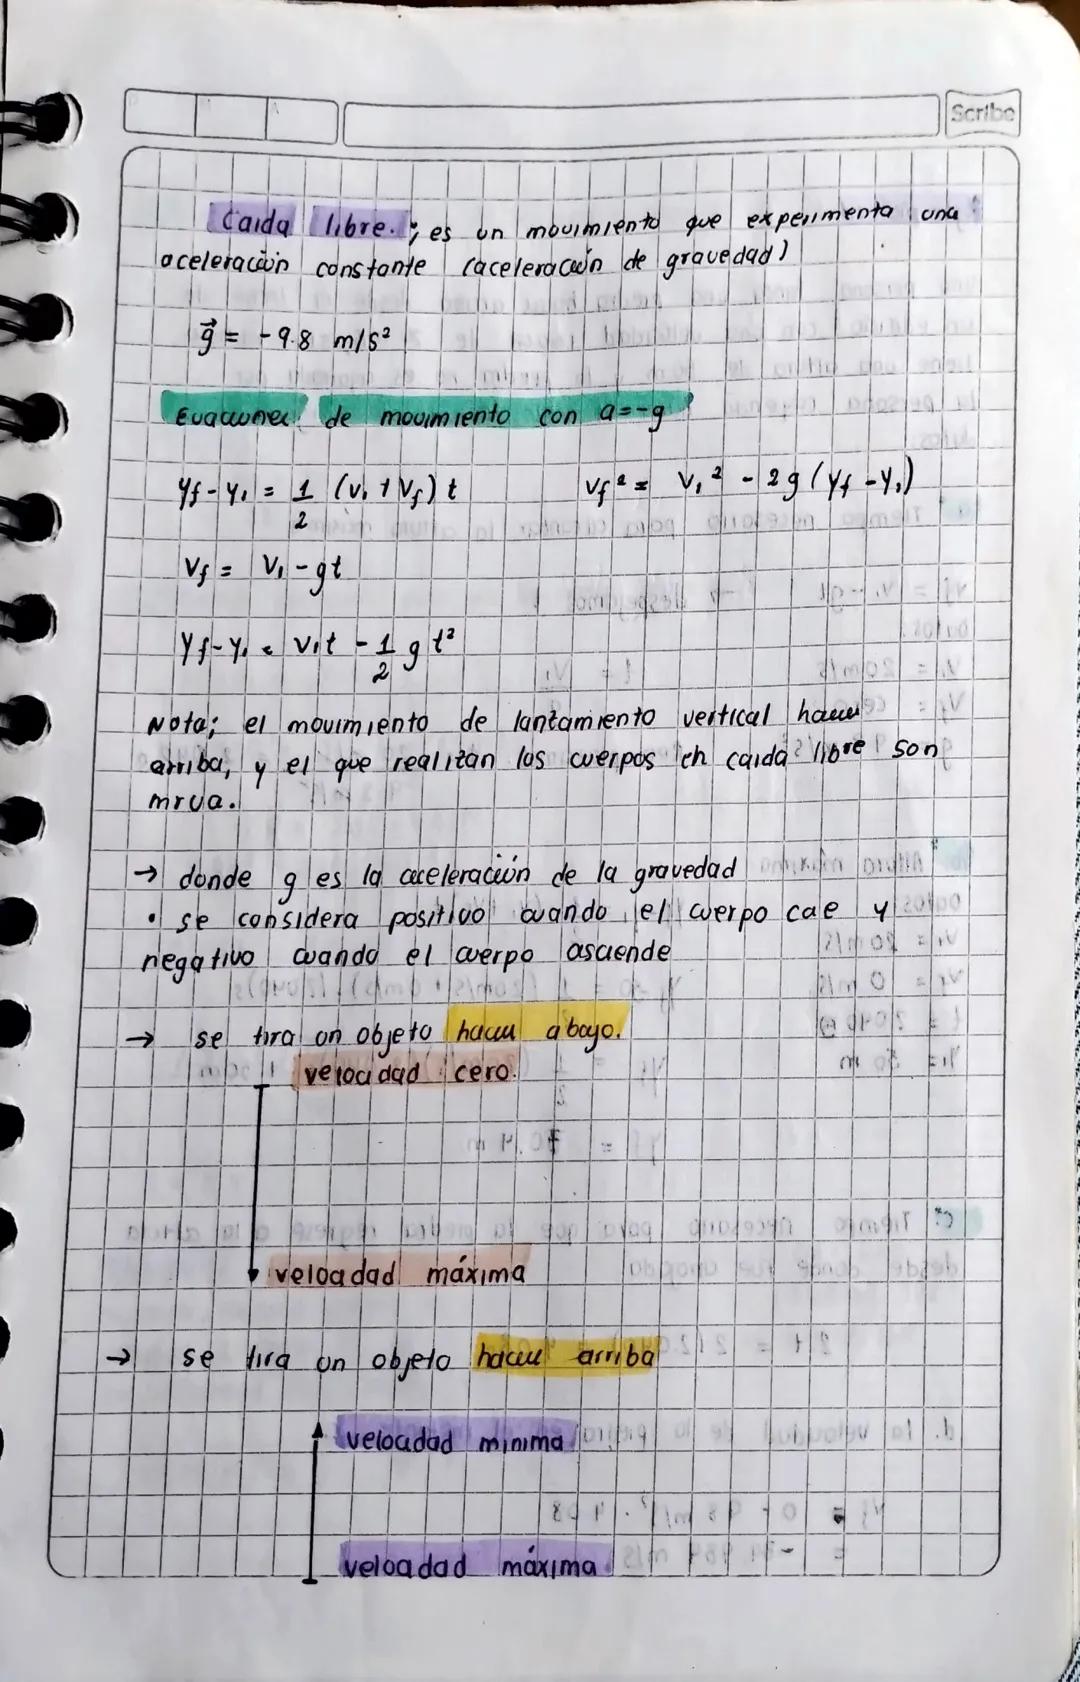 Scribe
Caida libre. ; es un movimiento que experimenta una
aceleración constante (aceleración de gravedad)
g⃗ = -9.8 m/s²
Ecuaciones de movimiento con a=-g
yf-yi = 1/2 (vi + vf) t
vf² = vi² - 2g (yf - yi)
vf = vi - gt
yf-yi = vit - 1/2 g t²
Nota; el movimiento de lanzamiento vertical hacia
arriba, y el que realizan los cuerpos en caida libre son
mrua.
→ donde g es la aceleración de la gravedad
• se considera positivo cuando el cuerpo cae y
negativo cuando el cuerpo asciende
→ se tira un objeto hacia abajo.
velocidad cero.
velocidad máxima
→ se tira un objeto hacia arriba
velocidad minima
velocidad máxima